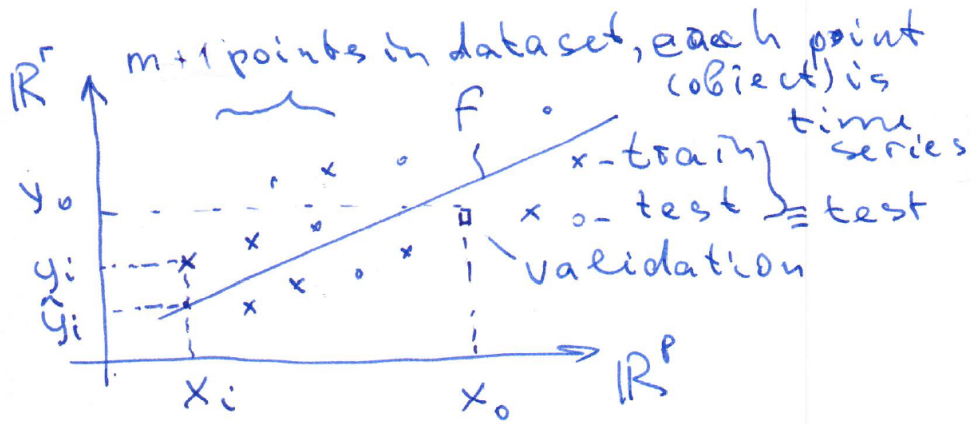 m+1 points in dataset, each point
(object) is
time
series
ℝʳ
f
x - train
o - test ≡ test
validation
y₀
yᵢ
ŷᵢ
xᵢ
x₀
ℝᵖ